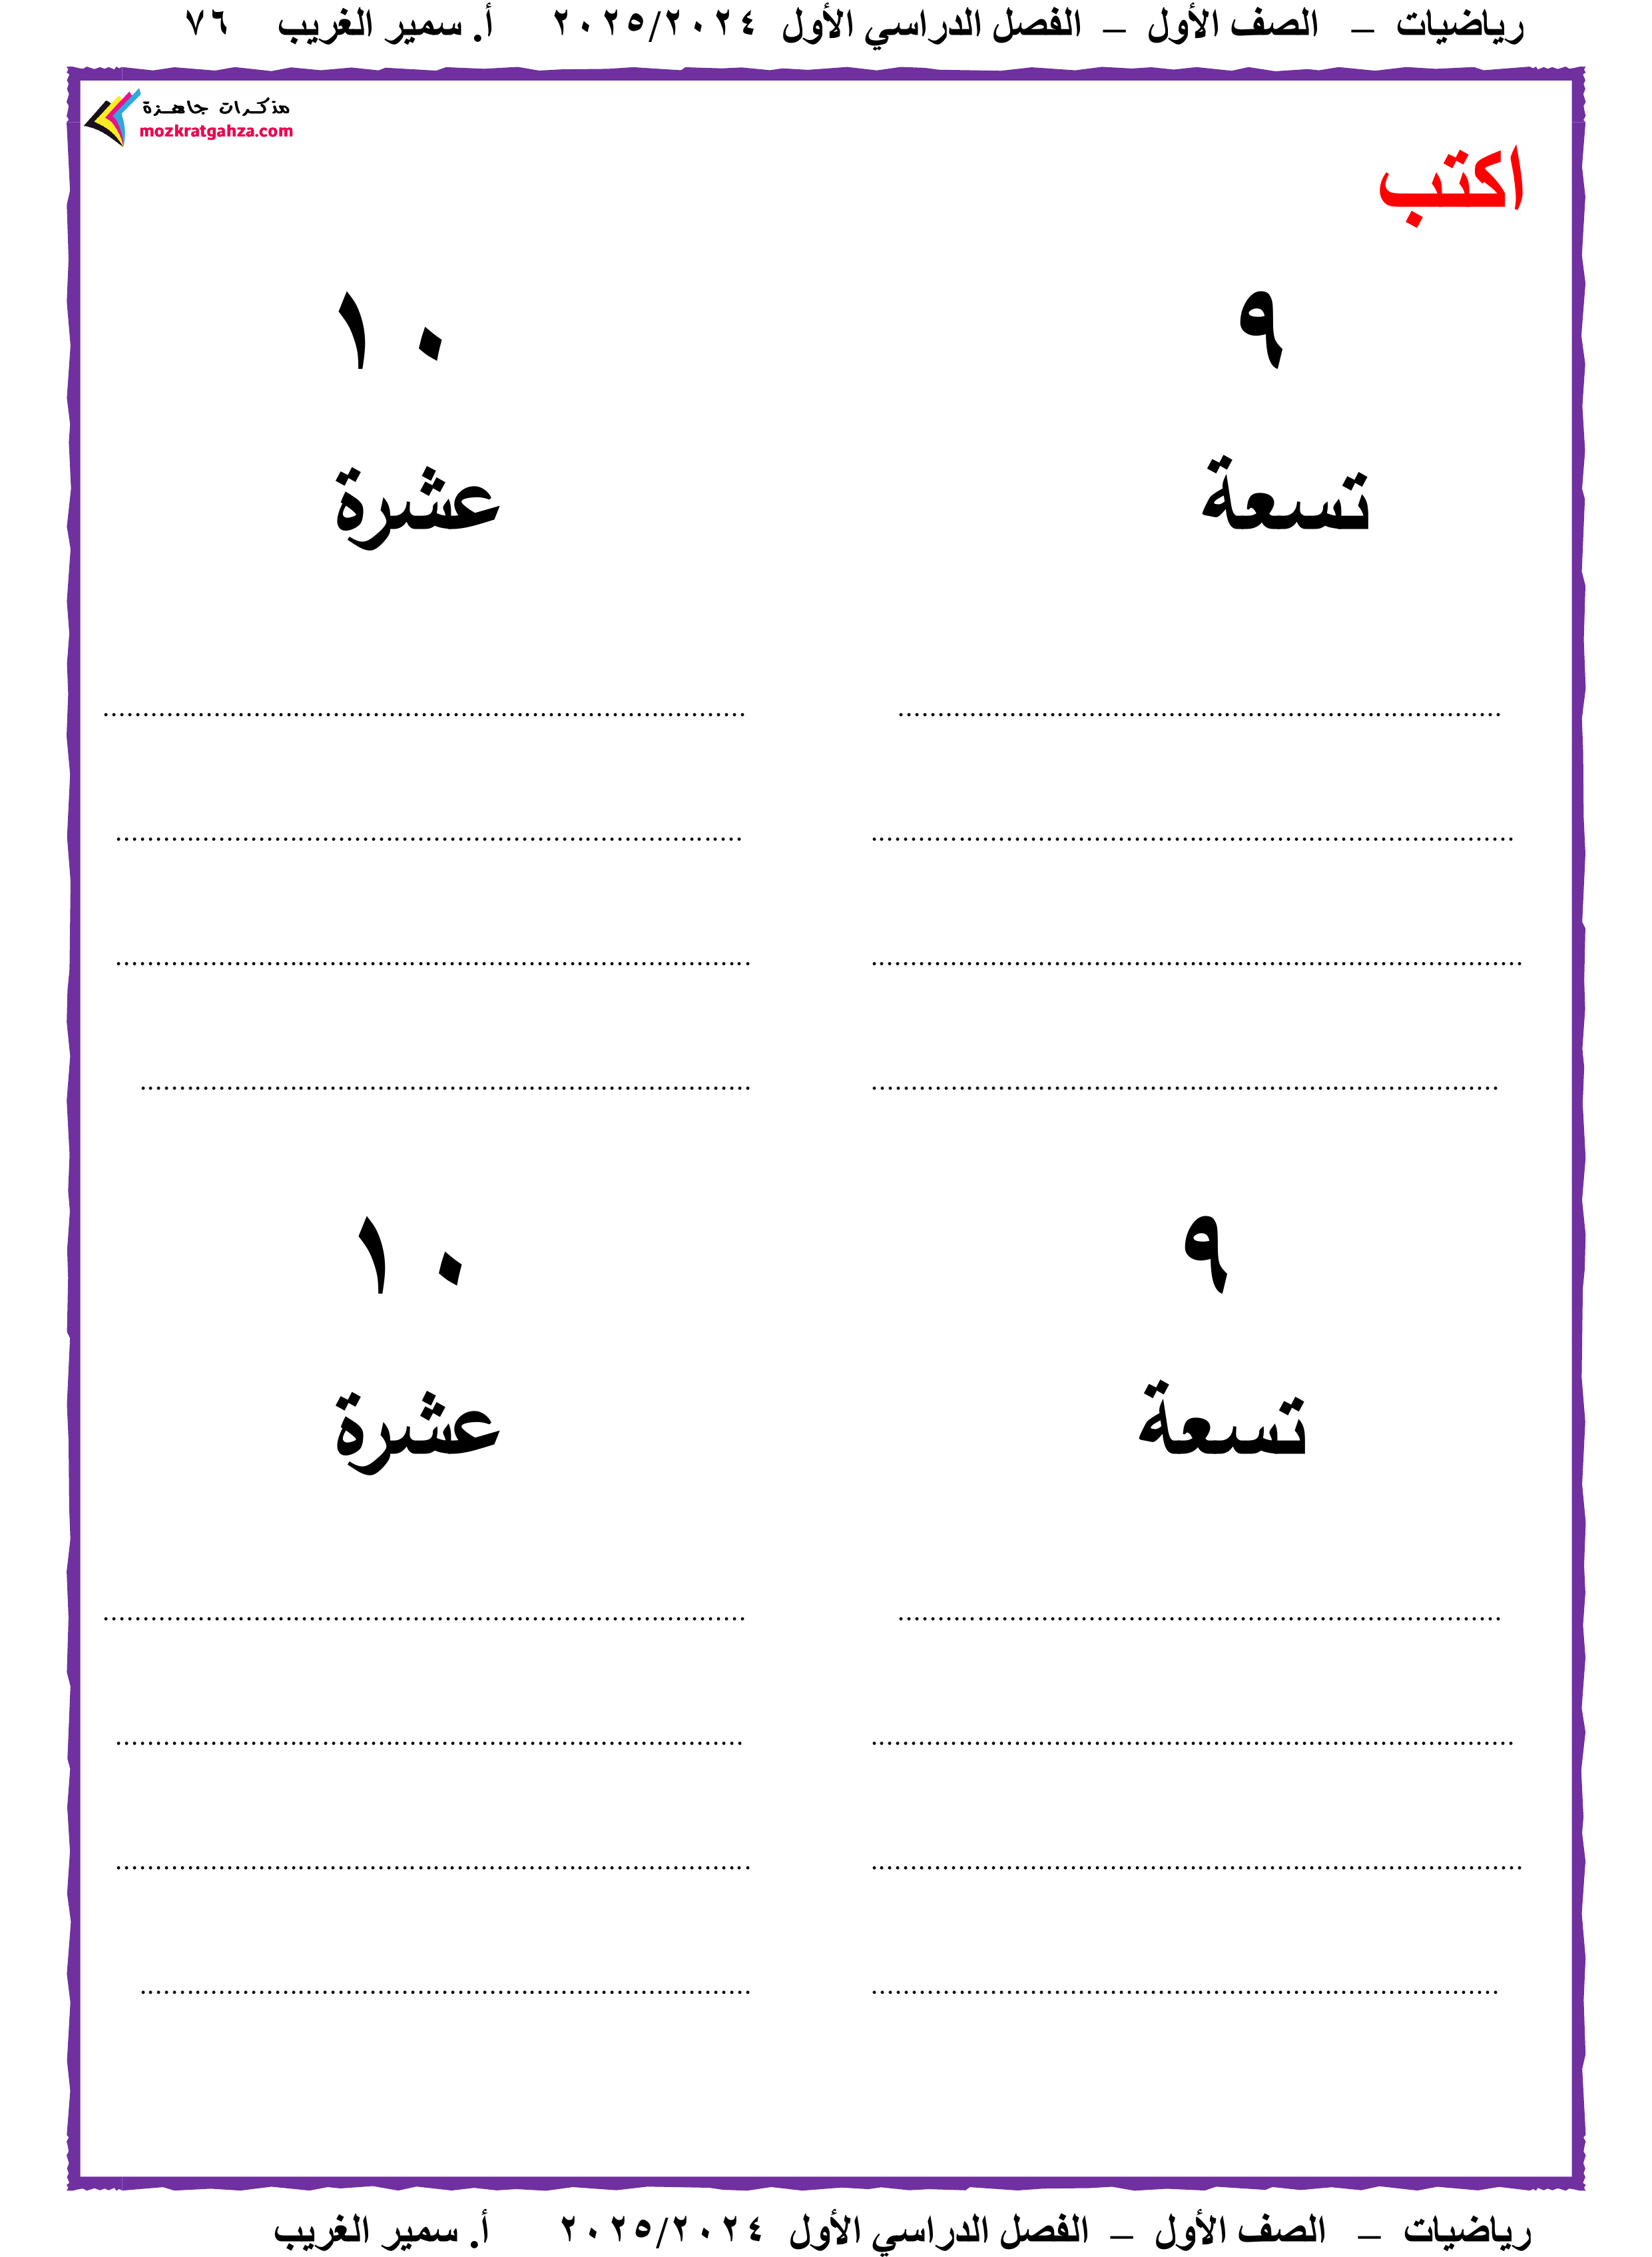 رياضيات – الصف الأول – الفصل الدراسي الأول ٢٠٢٥/٢٠٢٤ أ. سمير الغريب ٧٦
مذكرات جاهزة
mozkratgahza.com
اكتب
٩ ١٠
تسعة عشرة
........................................ ........................................
........................................ ........................................
........................................ ........................................
........................................ ........................................
٩ ١٠
تسعة عشرة
........................................ ........................................
........................................ ........................................
........................................ ........................................
........................................ ........................................
رياضيات – الصف الأول – الفصل الدراسي الأول ٢٠٢٥/٢٠٢٤ أ. سمير الغريب